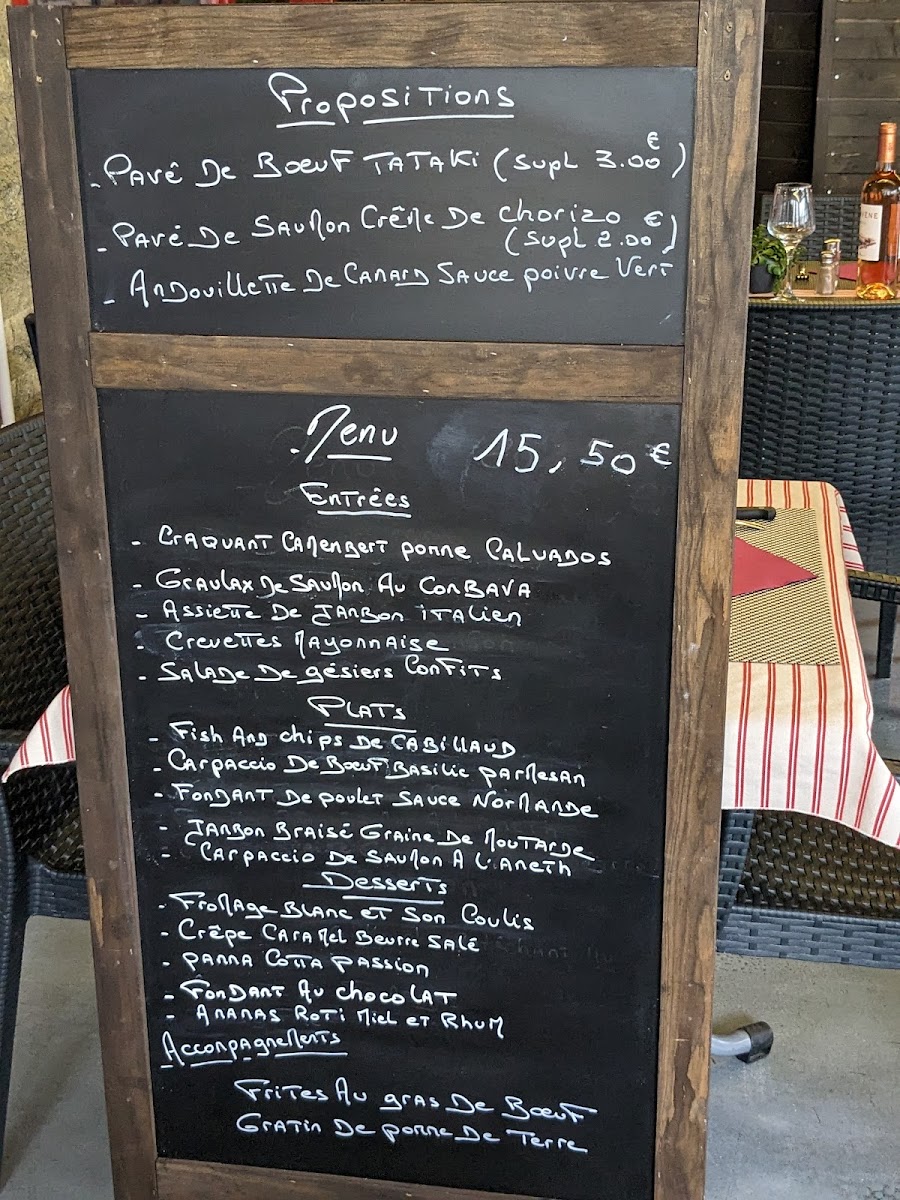 Propositions
- Pavé De Bœuf TATAKi (supl 3.00€)
- Pavé De Saumon Crême De chorizo
(supl 2.00€)
- Andouillette De Canard Sauce poivre Vert
Menu 15,50€
Entrées
- Craquant Camembert pomme Calvados
- Graulax De Saumon Au Combava
- Assiette De Jambon italien
- Crevettes Mayonnaise
- Salade De gésiers Confits
Plats
- Fish And chips De Cabillaud
- Carpaccio De Bœuf Basilic parmesan
- Fondant De poulet Sauce Normande
- Jambon Braisé Graine De Moutarde
- Carpaccio De Saumon A l'aneth
Desserts
- Fromage Blanc et Son Coulis
- Crêpe Caramel Beurre Salé
- panna Cotta passion
- Fondant Au chocolat
- Ananas Roti Miel et Rhum
Accompagnements
Frites Au gras De Bœuf
Gratin De pomme De Terre